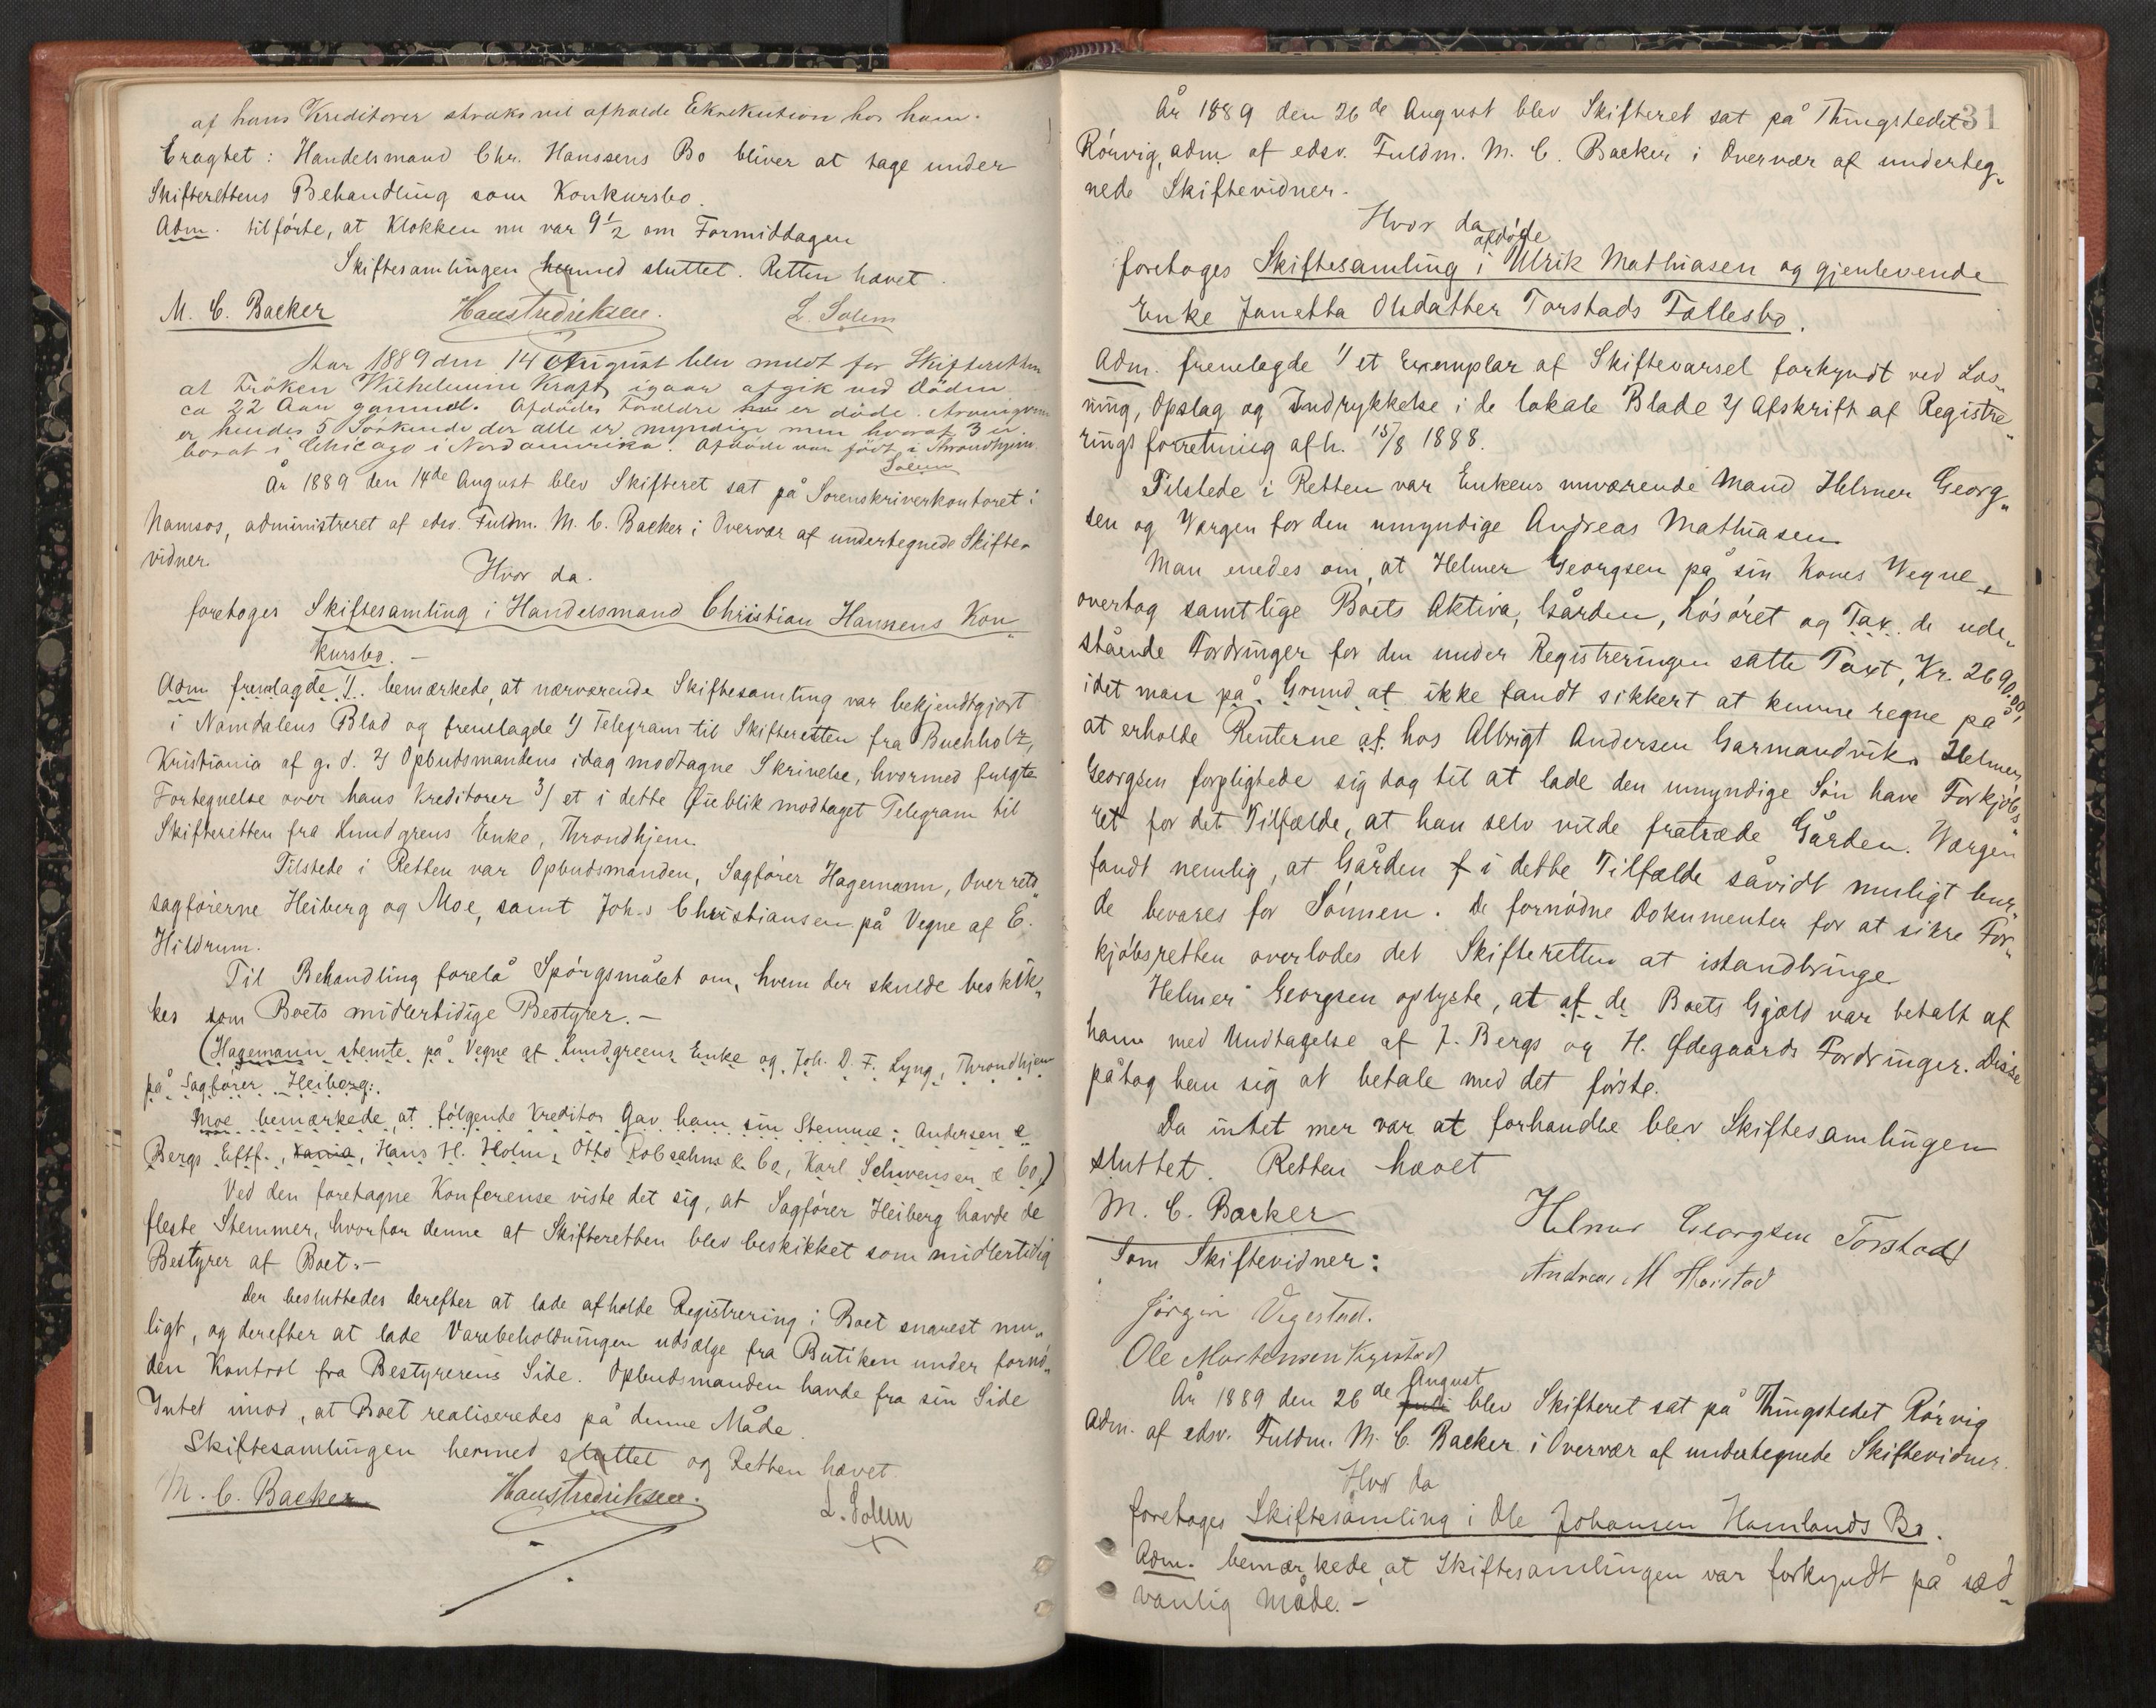 af hans Kreditorer straks vil afholde Eksekution hos ham.
Eragtet: Handelsmand Chr. Hanssens Bo bliver at tage under
Skifterettens Behandling som Konkursbo.
Adm. tilførte, at Klokken nu var 9 1/2 om Formiddagen
Skiftesamlingen hermed sluttet. Retten hævet.
M. C. Backer Hans Fredriksen. L. Solem
Aar 1889 den 14 August blev meldt for Skifteretten
at Fröken Vilhelmine Kraft igaar afgik ved döden
ca 22 Aar gammel. Afdödes Forældre er döde. Arvingerne
er hendes 5 Söskende der alle er myndige men hvoraf 3 er
bosat i Chicago i Nordamerika. Afdöde var födt i Throndhjem.
Solem
År 1889 den 14de August blev Skifteret sat på Sorenskriverkontoret i
Namsos, administreret af edsv. Fuldm. M. C. Backer i Overvær af undertegnede Skifte-
vidner.
Hvor da.
foretoges Skiftesamling i Handelsmand Christian Hanssens Kon„
kursbo. -
Adm fremlagde 1. bemærkede, at nærværende Skiftesamling var bekjendtgjort
i Namdalens Blad og fremlagde 1/ Telegram til Skifteretten fra Buchholz,
Kristiania af g. d. 2/ Opbudsmandens idag modtagne Skrivelse, hvormed fulgte
Fortegnelse over hans Kreditorer 3/ et i dette Øieblik modtaget Telegram til
Skifteretten fra Lundgrens Enke, Throndhjem.
Tilstede i Retten var Opbudsmanden, Sagfører Hagemann, Overrets„
sagførerne Heiberg og Moe, samt Johs Christiansen på Vegne af E.
Hildrum.
Til Behandling forelå Spørgsmålet om, hvem der skulde beskik„
kes som Boets midlertidige Bestyrer. -
(Hagemann stemte på Vegne af Lundgreens Enke og Joh. D. F. Lyng, Throndhjem
på Sagfører Heiberg.
Moe bemærkede, at følgende Kreditor Gav ham sin Stemme: Andersen &
Bergs Eftf., Hans H. Holm, Otto Robsahm & Co, Karl Schwensen & Co,)
Ved den foretagne Konferense viste det sig, at Sagfører Heiberg havde de
fleste Stemmer, hvorfor denne af Skifteretten blev beskikket som midlertidig
Bestyrer af Boet. -
Der besluttedes derefter at lade afholde Registrering i Boet snarest mu„
ligt, og derefter at lade Varebeholdningen udsælge fra Butiken under fornø„
den Kontrol fra Bestyrerens Side. Opbudsmanden havde fra sin Side
Intet imod, at Boet realiseredes på denne Måde.
Skiftesamlingen hermed sluttet og Retten hævet.
M. C. Backer Hans Fredriksen. L. Solem
31
År 1889 den 26de August blev Skifteret sat på Thingstedet
Rørvig, adm af edsv. Fuldm. M. C. Backer i Overvær af underteg„
nede Skiftevidner.
Hvor da
afdøde
foretoges Skiftesamling i Ulrik Mathiasen og gjenlevende
Enke Janetta Olsdatter Torstads Fællesbo.
Adm. fremlagde 1/ et Exemplar af Skiftevarsel forkyndt ved Læs„
ning, Opslag og Indrykkelse i de lokale Blade 2/ Afskrift af Registre„
rings forretning afh. 15/8 1888.
Tilstede i Retten var Enkens nuværende Mand Helmer Georg„
sen og Værgen for den umyndige Andreas Mathiasen
Man enedes om, at Helmer Georgsen på sin Kones Vegne
overtog samtlige Boets Aktiva, Gården, Løsøret og Tax. de ude„
stående Fordringer for den under Registreringen satte Taxt, Kr. 2690.00,
idet man på Grund af ikke fandt sikkert at kunne regne på
at erholde Renterne af hos Albrigt Andersen Garmandvik. Helmer
Georgsen forpligtede sig dog til at lade den umyndige Søn have Forkjøbs„
ret for det Tilfælde, at han selv vilde fratræde Gården. Værgen
fandt nemlig, at Gården f i dette Tilfælde såvidt muligt bur„
de bevares for Sønnen. De fornødne Dokumenter for at sikre For„
kjøbsretten overlodes det Skifteretten at istandbringe
Helmer Georgsen oplyste, at af de Boets Gjæld var betalt af
ham med Undtagelse af J. Bergs og H. Ødegaards Fordringer. Disse
påtog han sig at betale med det første.
Da intet mer var at forhandle blev Skiftesamlingen
sluttet. Retten hævet
M. C. Backer Helmer Georgsen Torstad
Som Skiftevidner: Andreas M
Jørgin Vegestad.
Ole Mortensen
August
År 1889 den 26de blev Skifteret sat på Thingstedet Rørvig
Adm. af edsv. Fuldm. M. C. Backer i Overvær af undertegnede Skiftevidner.
Hvor da
foretoges Skiftesamling i Ole Johansen Hamlands Bo.
Adm. bemærkede, at Skiftesamlingen var forkyndt på sæd„
vanlig Måde. -